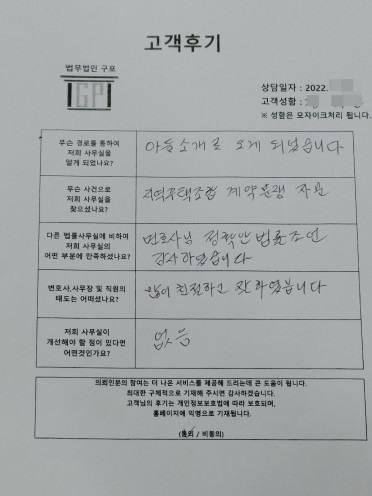 고객후기
법무법인 구포
GP
상담일자 : 2022.
고객성함 :
※ 성함은 모자이크처리 됩니다.
무슨 경로를 통하여
저희 사무실을
알게 되었나요?
아들소개로 오게 되었습니다
무슨 사건으로
저희 사무실을
찾으셨나요?
지역주택조합 계약분쟁 자문
다른 법률사무실에 비하여
저희 사무실의
어떤 부분에 만족하셨나요?
변호사님 정확한 법률조언
감사하였습니다
변호사,사무장 및 직원의
태도는 어떠셨나요?
많이 친절하고 잘 하였습니다
저희 사무실이
개선해야 할 점이 있다면
어떤것인가요?
없음
의뢰인분의 참여는 더 나은 서비스를 제공해 드리는데 큰 도움이 됩니다.
최대한 구체적으로 기재해 주시면 감사하겠습니다.
고객님의 후기는 개인정보보호법에 따라 보호되며,
홈페이지에 익명으로 기재됩니다.
(동의 / 비동의)